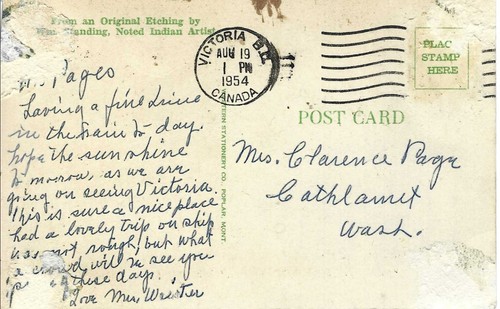 From an Original Etching by
Wm. Standing, Noted Indian Artist
VICTORIA B.C.
AUG 19
1 PM
1954
CANADA
PLAC
STAMP
HERE
POST CARD
ERN STATIONERY CO. POPLAR, MONT
Pages
Having a fine time
in the rain to day.
hope the sun shine
to morrow as we are
going on seeing Victoria.
This is sure a nice place
had a lovely trip on ship
was not rough, but what
a crowd, will be see you
these days.
Love Mrs.
Mrs. Clarence Page
Cathlamet
Wash.